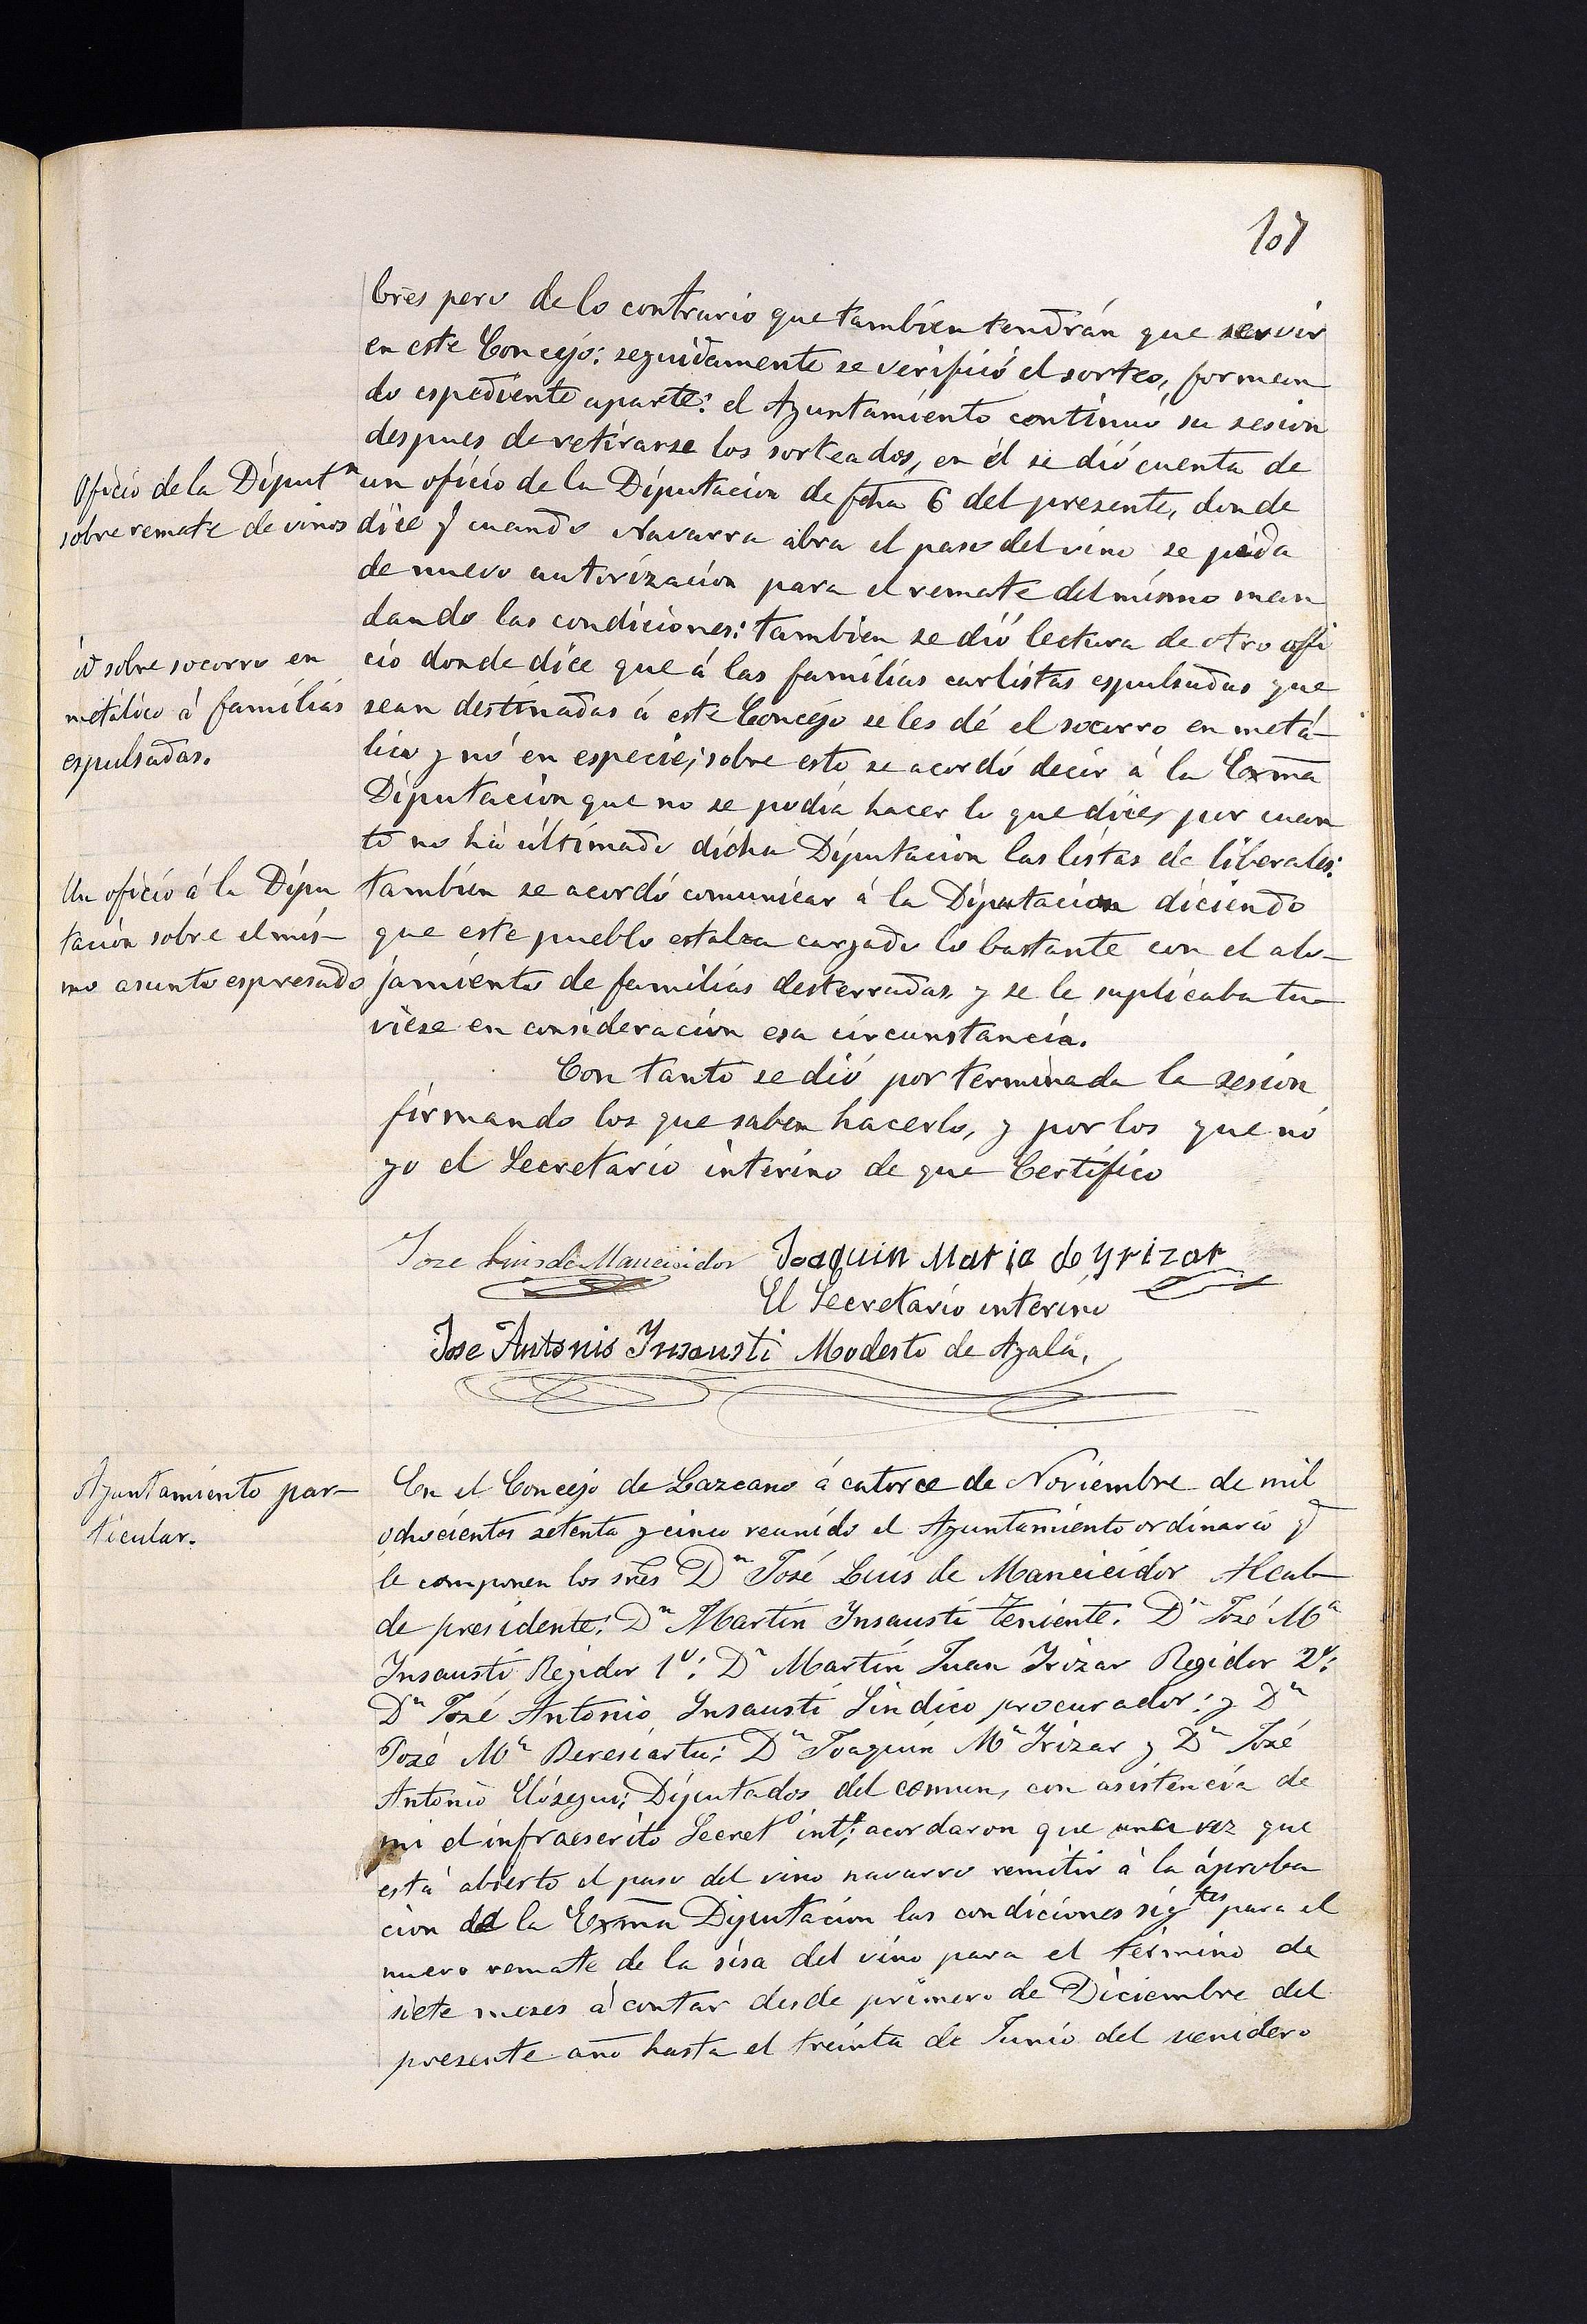 107
bres pero de lo contrario que tambien tendrán que servir
en este Concejo: seguidamente se verificó el sorteo, forman
do espediente aparte: el Ayuntamiento continuó su sesion
despues de retirarse los sorteados, en él se dió cuenta de
Oficio de la Diputn
sobre remate de vinos
un oficio de la Diputacion de fcha 6 del presente, donde
dice q cuando Navarra abra el paso del vino se pida
de nuevo autorizacion para el remate del mismo man
dando las condiciones: tambien se dió lectura de otro ofi
id sobre socorro en
metálico á familias
espulsadas.
cio donde dice que á las familias carlistas espulsadas que
sean destinadas á este Concejo se les dé el socorro en metá-
lico y nó en especie; sobre esto se acordó decir á la Exma
Diputacion que no se podia hacer lo que dice, por cuan
to no há ultimado dicha Diputacion las listas de liberales:
Un oficio á la Dipu
tacion sobre el mis-
mo asunto espresado
tambien se acordó comunicar á la Diputacion diciendo
que este pueblo estaba cargado lo bastante con el alo-
jamiento de familias desterradas y se le suplicaba tu-
viese en consideracion esa circunstancia.
Con tanto se dió por terminada la sesion
firmando los que saben hacerlo, y por los que nó
yo el Secretario interino de que Certifico
Jose Luis de Mancisidor Joaquin Maria de Yrizar
El Secretario interino
Jose Antonio Ynsausti Modesto de Ayala,
Ayuntamiento par-
ticular.
En el Concejo de Lazcano á catorce de Noviembre de mil
ochocientos setenta y cinco reunido el Ayuntamiento ordinario q
le componen los sres Dn José Luis de Mancicidor Alcal-
de presidente: Dn Martin Ynsausti Teniente: Dn José Ma
Ynsausti Regidor 1º: Dn Martin Juan Yrizar Regidor 2º:
Dn José Antonio Ynsausti Sindico procurador: y Dn
José Ma Beresiartu: Dn Joaquin Ma Yrizar y Dn José
Antonio Elósegui: Diputados del comun, con asistencia de
mi el infraescrito Secreto intº; acordaron que una vez que
está abierto el paso del vino navarro remitir á la aproba
cion de la Exma Diputacion las condiciones sigtes para el
nuevo remate de la sisa del vino para el término de
siete meses á contar desde primero de Diciembre del
presente año hasta el treinta de Junio del venidero